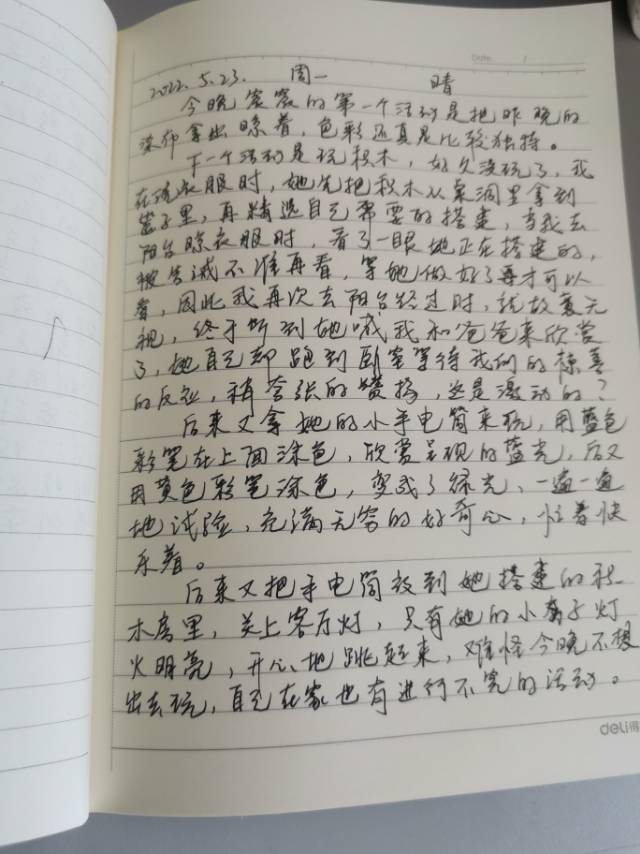 Date: /
2022.5.23. 周一 晴
今晚宸宸的第一个活动是把昨晚的
染布拿出晾着,色彩还真是比较独特。
下一个活动是玩积木,好久没玩了,我
在洗衣服时,她先把积木从桌洞里拿到
篮子里,再精选自己需要的搭建,当我去
阳台晾衣服时,看了一眼她正在搭建的,
被告诫不准再看,等她做好了再才可以
看,因此我再次去阳台经过时,就故意无
视,终于听到她喊我和爸爸来欣赏
了,她自己却跑到卧室等待我们的惊喜
的反应,稍夸张的赞扬,还是激动的?
后来又拿她的小手电筒来玩,用蓝色
彩笔在上面涂色,欣赏呈现的蓝光,后又
用黄色彩笔涂色,变成了绿光,一遍一遍
地试验,充满无穷的好奇心,忙着快
乐着。
后来又把手电筒放到她搭建的积
木房里,关上客厅灯,只有她的小房子灯
火明亮,开心地跳起来,难怪今晚不想
出去玩,自己在家也有进行不完的活动。
deli得